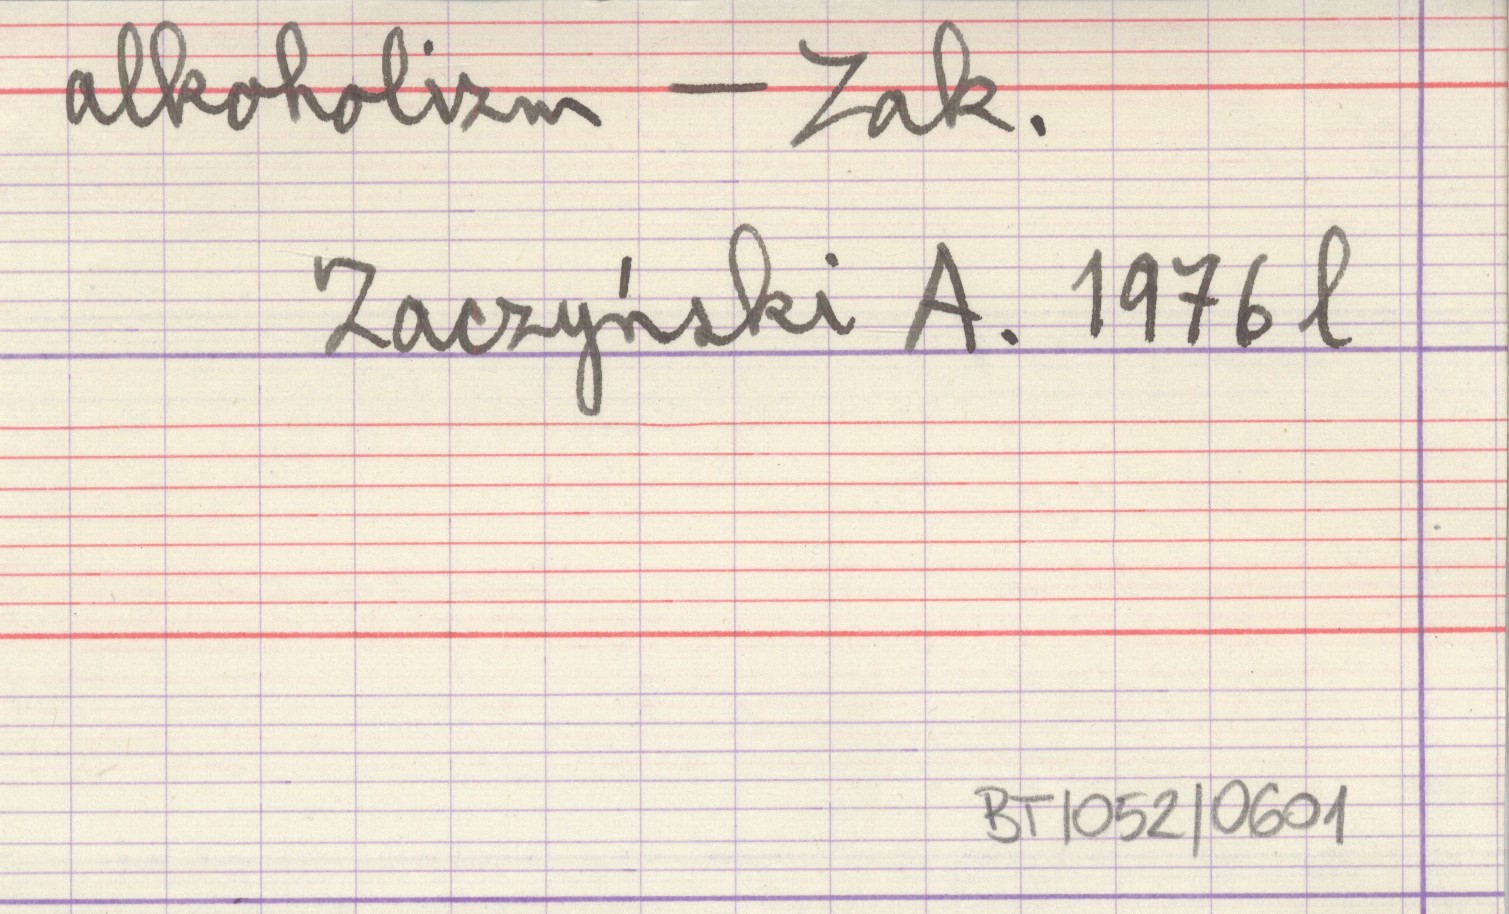 alkoholizm — Zak.
Zaczyński A. 1976 l
BT/052/0601